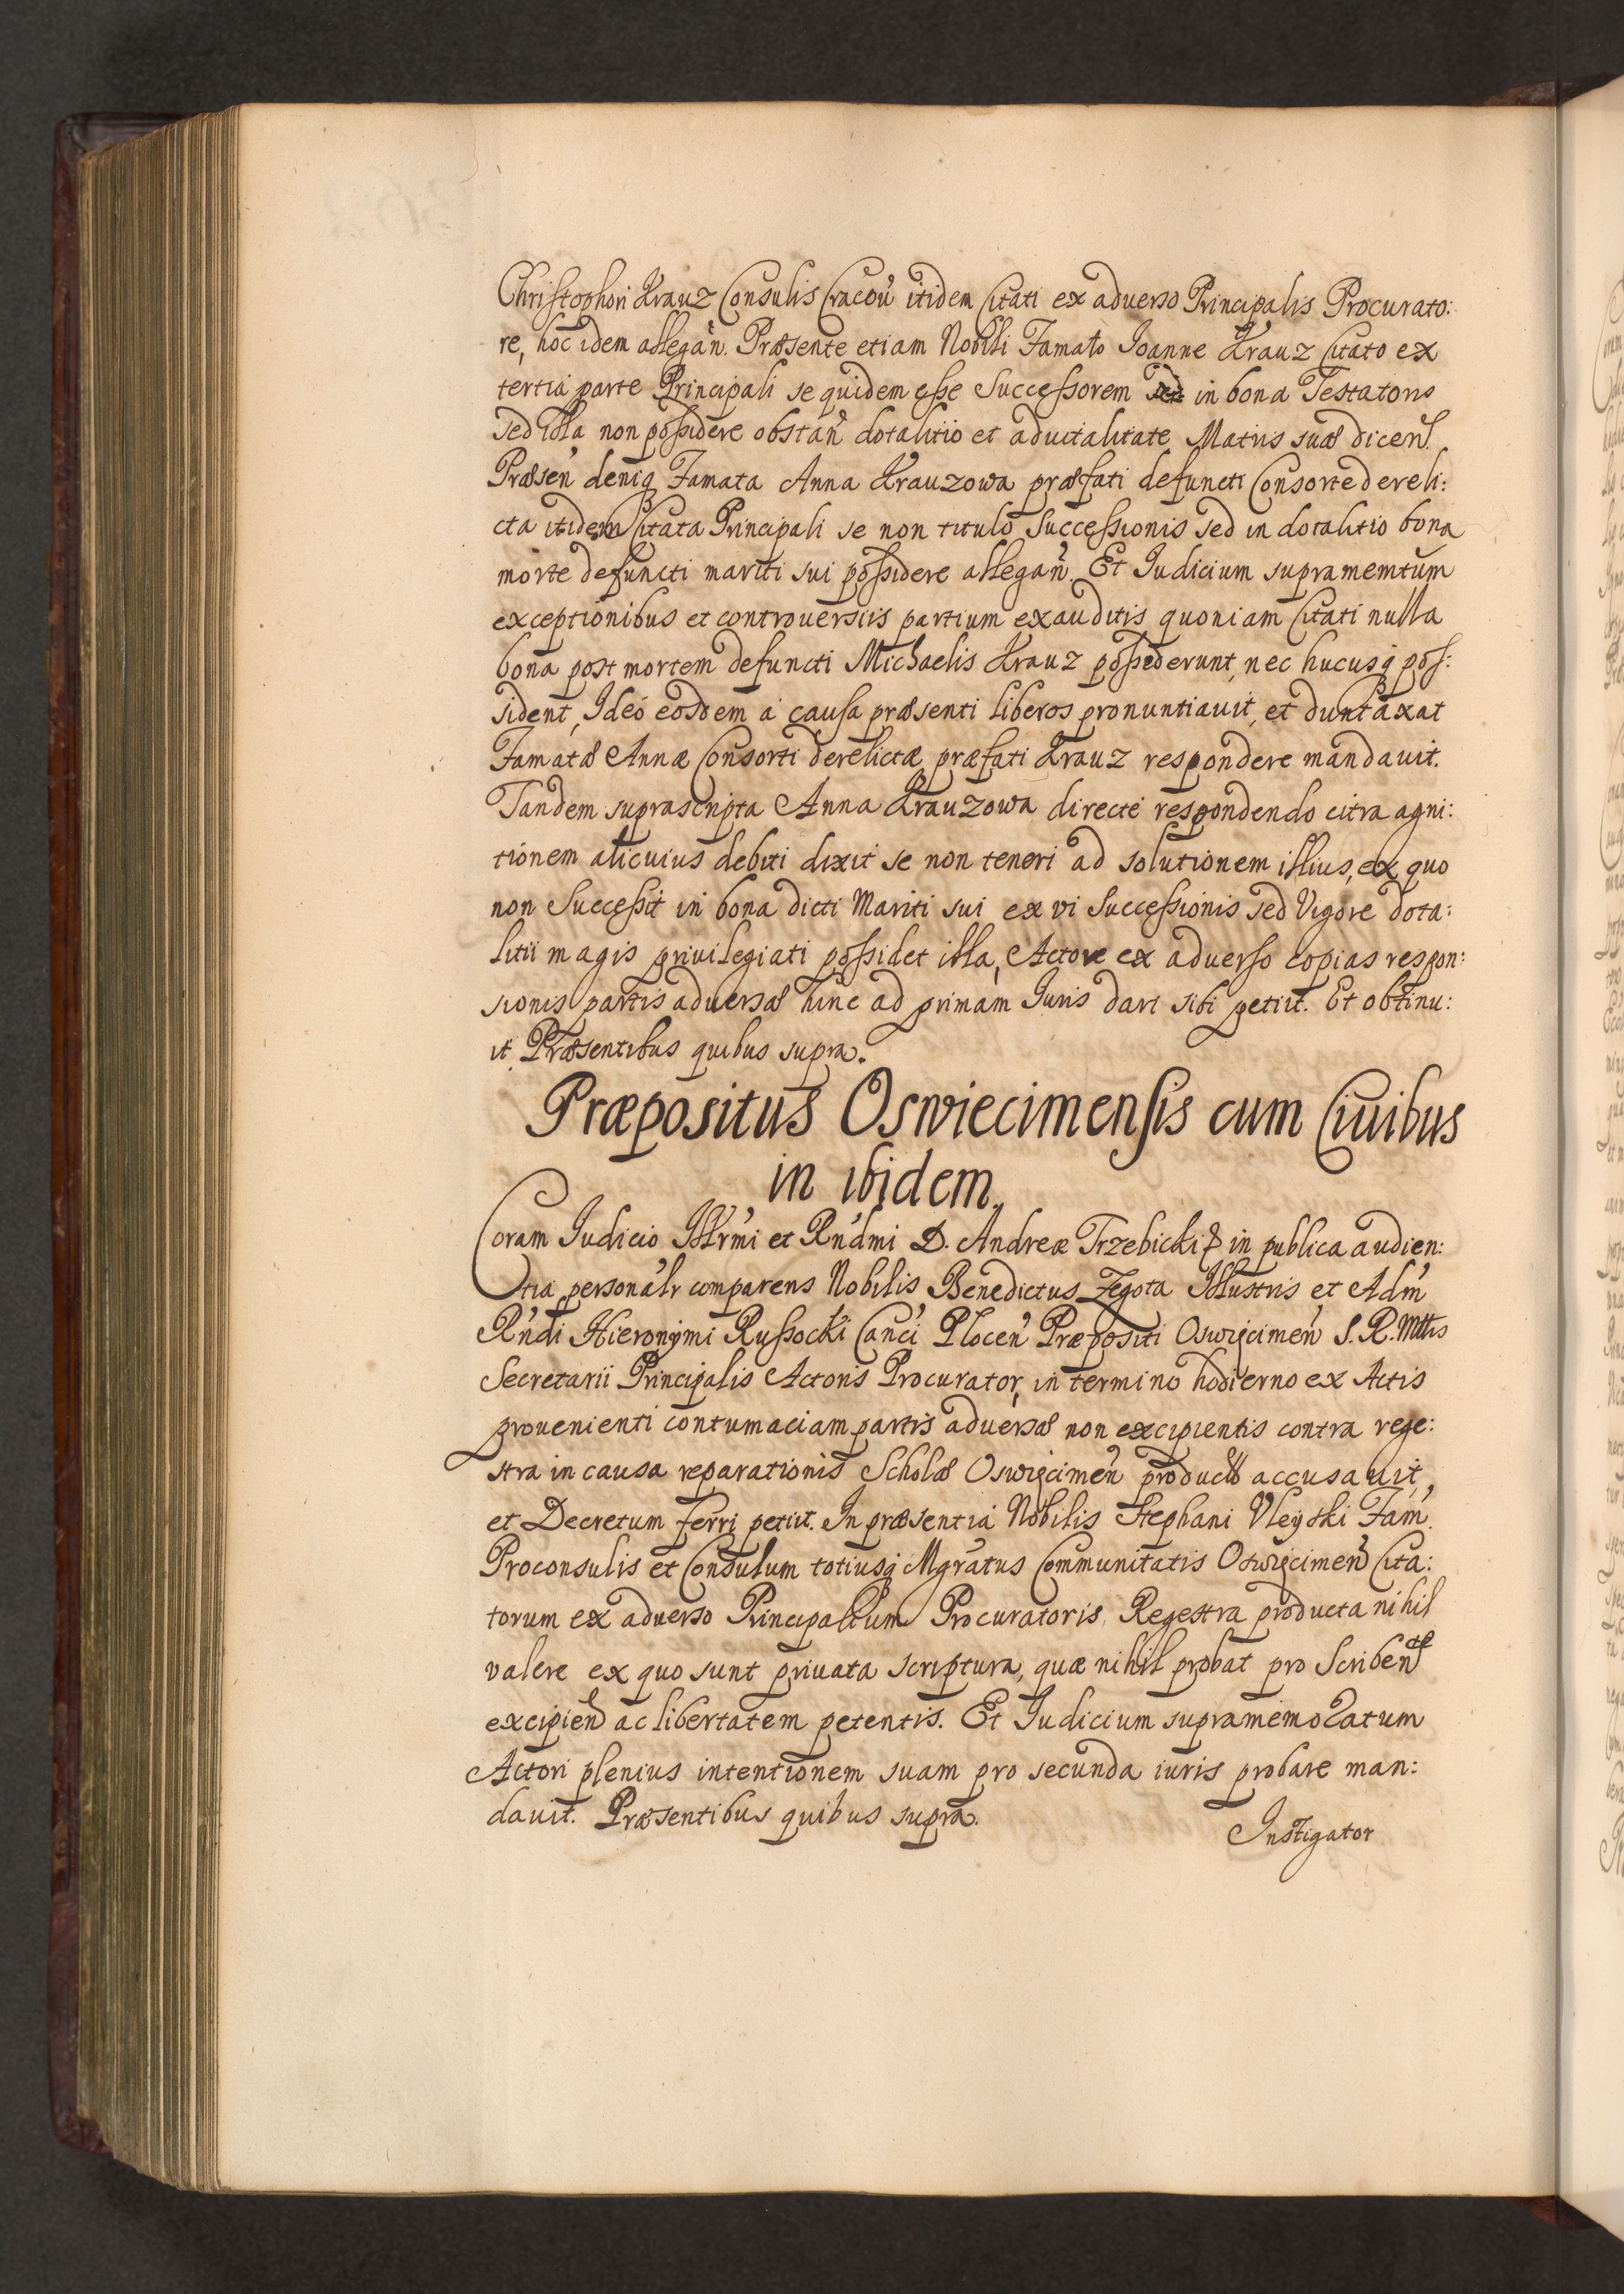 Christophori Krauz Consulis Cracoũ itidem Citati ex aduerso Principalis Procurato:
re, hoc idem allegañ. Præsente etiam Nobili Famato Joanne Krauz Citato ex
tertia parte Principali se quidem esse Successorem in bona Testatoris
sed illa non possidere obstañ dotalitio et aduitalitate Matris suæ dicen
Præseñ deniq Famata Anna Krauzowa præfati defuncti Consorte dereli:
cta itidem Citata Principali se non titulo Successionis sed in dotalitio bona
morte defuncti mariti sui possidere allegañ. Et Judicium supramemtum
exceptionibus et controuersiis partium exauditis quoniam Citati nulla
bona post mortem defuncti Michaelis Krauz possederunt, nec hucusq pos:
sident, Ideó eosdem á causa præsenti liberos pronuntiauit, et duntaxat
Famatæ Annæ Consorti derelictæ præfati Krauz respondere mandauit.
Tandem suprascripta Anna Krauzowa directé respondendo citra agni:
tionem alicuius debiti dixit se non teneri ad solutionem illius, ex quo
non Successit in bona dicti Mariti sui ex vi Successionis sed Vigore dota:
litii magis priuilegiati possidet illa, Actore ex aduerso copias respon:
sionis partis aduersæ hinc ad primam Juris dari sibi petiit. Et obtinu:
it. Præsentibus quibus supra.
Præpositus Oswiecimensis cum Ciuibus
in ibidem.
Coram Judicio Illrmi et Rndmi D. Andreæ Trzebicki in publica audien:
tia personalr comparens Nobilis Benedictus Zegota Illustris et Adm
Rndi Hieronymi Russocki Canci Ploceñ Præpositi Oswięcimeñ S. R. Mttis
Secretarii Principalis Actoris Procurator, in termino hodierno ex Actis
prouenienti contumaciam partis aduersæ non excipientis contra rege:
stra in causa reparationis Scholæ Oswięcimeñ producta accusauit,
et Decretum ferri petiit. In præsentia Nobilis Stephani Vleyski Fam.
Proconsulis et Consulum totiusq Mgratus Communitatis Oswięcimeñ Cita:
torum ex aduerso Principalium Procuratoris, Regestra producta nihil
valere ex quo sunt priuata scriptura, quæ nihil probat pro Scribente
excipieñ ac libertatem petentis. Et Judicium supramemoratum
Actori plenius intentionem suam pro secunda iuris probare man:
dauit. Præsentibus quibus supra.
Instigator